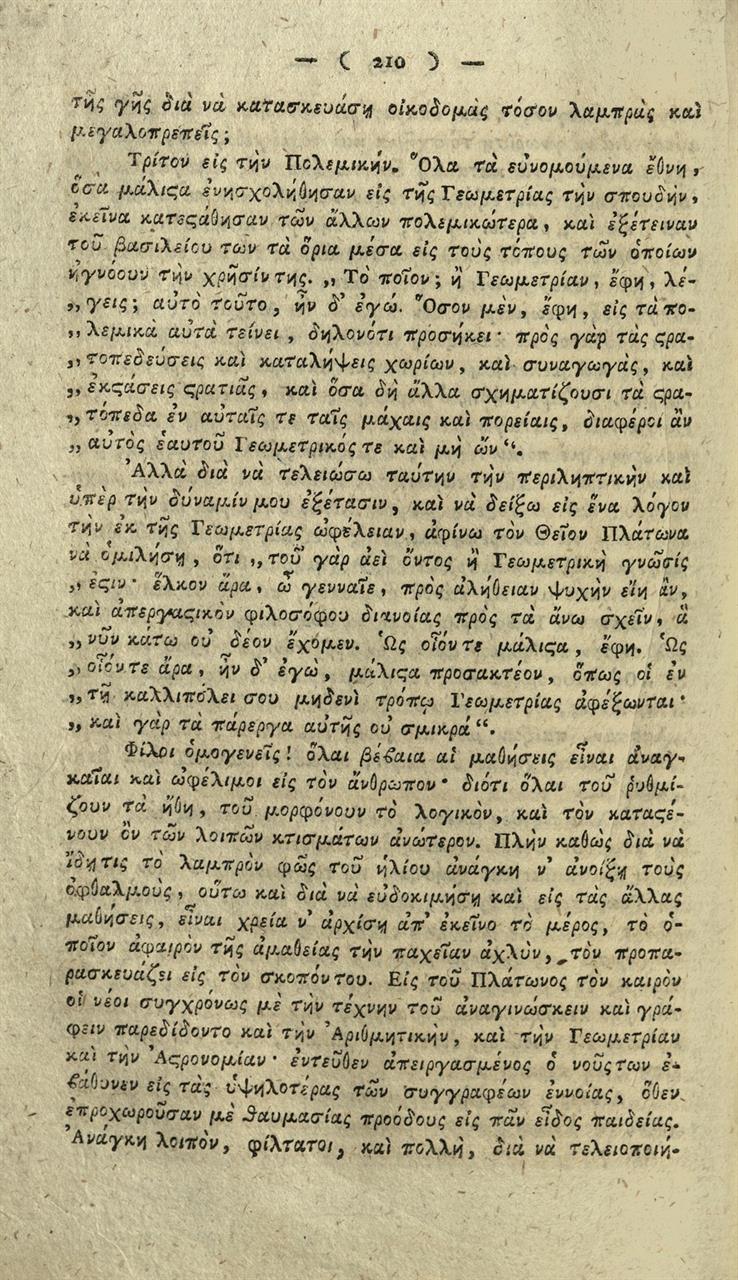 — ( 210 ) —
τῆς γῆς διὰ νὰ κατασκευάσῃ οἰκοδομὰς τόσον λαμπρὰς καὶ
μεγαλοπρεπεῖς;
Τρίτον εἰς τὴν Πολεμικήν. Ὅλα τὰ εὐνομούμενα ἔθνη,
ὅσα μάλιϛα ἐνησχολήθησαν εἰς τῆς Γεωμετρίας τὴν σπουδὴν,
ἐκεῖνα κατεϛάθησαν τῶν ἄλλων πολεμικώτερα, καὶ ἐξέτειναν
τοῦ βασιλείου των τὰ ὅρια μέσα εἰς τοὺς τόπους τῶν ὁποίων
ἠγνόουν τὴν χρῆσίν της. „Τὸ ποῖον; ἢ Γεωμετρίαν, ἔφη, λέ-
„γεις; αὐτὸ τοῦτο, ἦν δ' ἐγώ. Ὅσον μὲν, ἔφη, εἰς τὰ πο-
„λεμικὰ αὐτὰ τείνει, δηλονότι προσήκει· πρὸς γὰρ τὰς ϛρα-
„τοπεδεύσεις καὶ καταλήψεις χωρίων, καὶ συναγωγὰς, καὶ
„ἐκϛάσεις ϛρατιᾶς, καὶ ὅσα δὴ ἄλλα σχηματίζουσι τὰ ϛρα-
„τόπεδα ἐν αὐταῖς τε ταῖς μάχαις καὶ πορείαις, διαφέροι ἂν
„αὐτὸς ἑαυτοῦ Γεωμετρικός τε καὶ μὴ ὤν“.
Ἀλλὰ διὰ νὰ τελειώσω ταύτην τὴν περιληπτικὴν καὶ
ὑπὲρ τὴν δύναμίν μου ἐξέτασιν, καὶ νὰ δείξω εἰς ἕνα λόγον
τὴν ἐκ τῆς Γεωμετρίας ὠφέλειαν, ἀφίνω τὸν Θεῖον Πλάτωνα
νὰ ὁμιλήσῃ, ὅτι „τοῦ γὰρ ἀεὶ ὄντος ἡ Γεωμετρικὴ γνῶσίς
„ἐϛιν· ἕλκον ἄρα, ὦ γενναῖε, πρὸς ἀλήθειαν ψυχὴν εἴη ἂν,
καὶ ἀπεργαϛικὸν φιλοσόφου διανοίας πρὸς τὰ ἄνω σχεῖν, ἃ
„νῦν κάτω οὐ δέον ἔχομεν. Ὡς οἷόν τε μάλιϛα, ἔφη. Ὡς
„οἷόν τε ἄρα, ἦν δ' ἐγὼ, μάλιϛα προσακτέον, ὅπως οἱ ἐν
„τῇ καλλιπόλει σου μηδενὶ τρόπῳ Γεωμετρίας ἀφέξωνται·
„καὶ γὰρ τὰ πάρεργα αὐτῆς οὐ σμικρά“.
Φίλοι ὁμογενεῖς! ὅλαι βέβαια αἱ μαθήσεις εἶναι ἀναγ-
καῖαι καὶ ὠφέλιμοι εἰς τὸν ἄνθρωπον· διότι ὅλαι τοῦ ῥυθμί-
ζουν τὰ ἤθη, τοῦ μορφόνουν τὸ λογικὸν, καὶ τὸν καταϛέ-
νουν ὂν τῶν λοιπῶν κτισμάτων ἀνώτερον. Πλὴν καθὼς διὰ νὰ
ἴδῃ τις τὸ λαμπρὸν φῶς τοῦ ἡλίου ἀνάγκη ν' ἀνοίξῃ τοὺς
ὀφθαλμοὺς, οὕτω καὶ διὰ νὰ εὐδοκιμήσῃ καὶ εἰς τὰς ἄλλας
μαθήσεις, εἶναι χρεία ν' ἀρχίσῃ ἀπ' ἐκεῖνο τὸ μέρος, τὸ ὁ-
ποῖον ἀφαιρὸν τῆς ἀμαθείας τὴν παχεῖαν ἀχλὺν, τὸν προπα-
ρασκευάζει εἰς τὸν σκοπόν του. Εἰς τοῦ Πλάτωνος τὸν καιρὸν
οἱ νέοι συγχρόνως μὲ τὴν τέχνην τοῦ ἀναγινώσκειν καὶ γρά-
φειν παρεδίδοντο καὶ τὴν Ἀριθμητικὴν, καὶ τὴν Γεωμετρίαν
καὶ τὴν Ἀϛρονομίαν· ἐντεῦθεν ἀπειργασμένος ὁ νοῦς των ἐ-
βάθυνεν εἰς τὰς ὑψηλοτέρας τῶν συγγραφέων ἐννοίας, ὅθεν
ἐπροχωροῦσαν μὲ θαυμασίας προόδους εἰς πᾶν εἶδος παιδείας.
Ἀνάγκη λοιπὸν, φίλτατοι, καὶ πολλὴ, διὰ νὰ τελειοποιή-